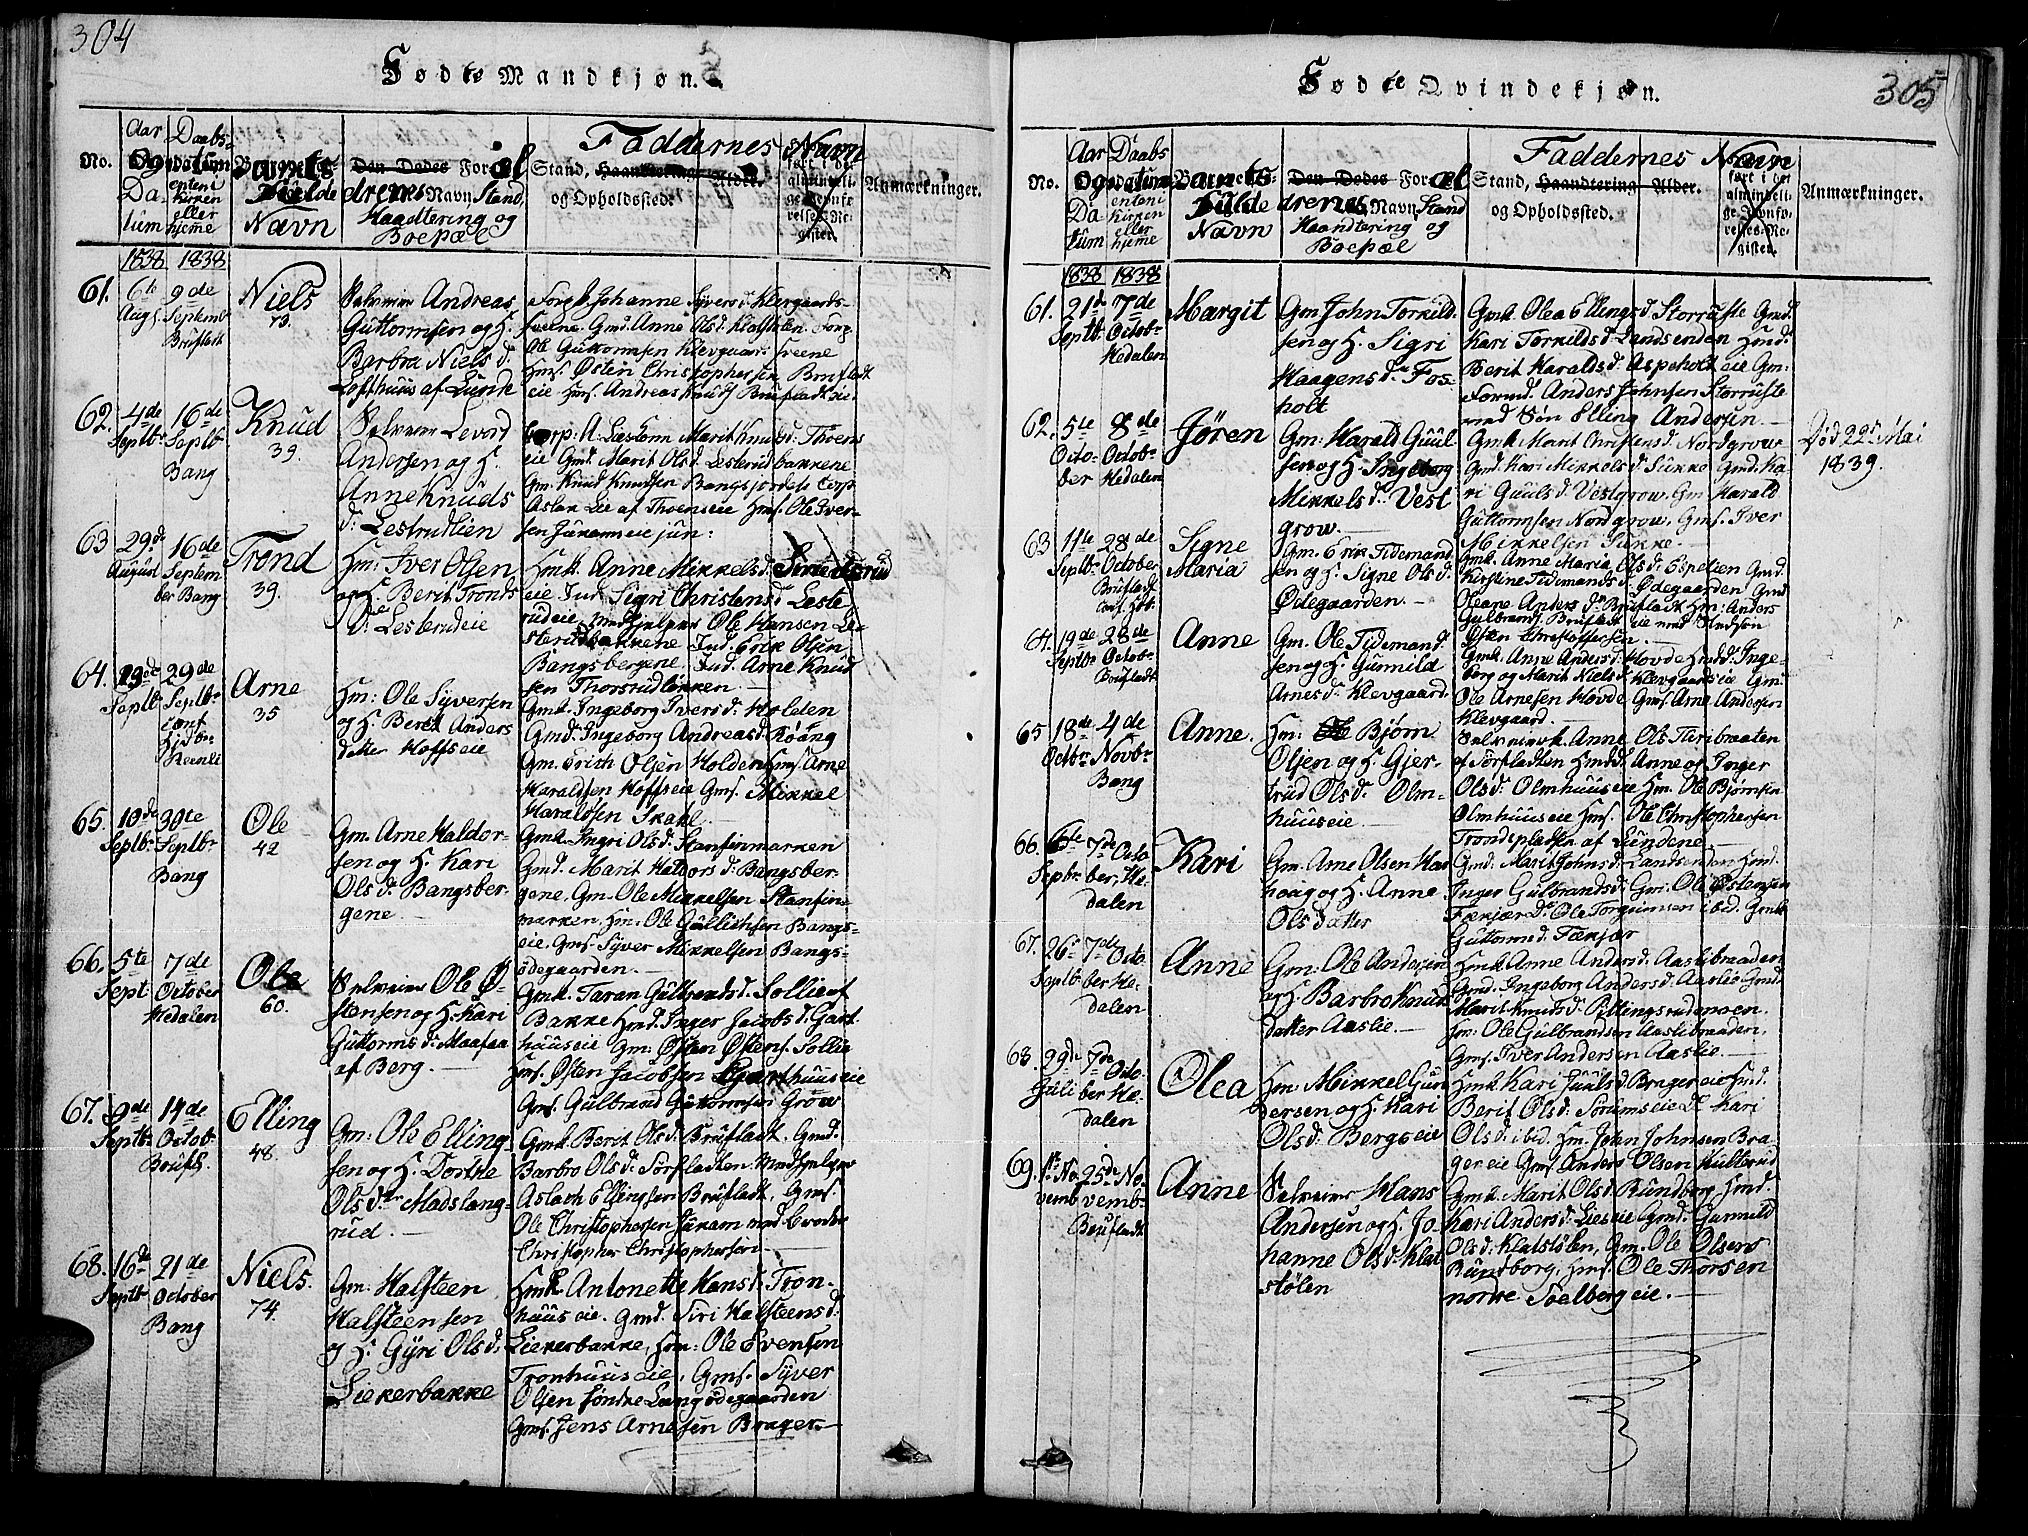 304
Fødte Mandkjøn.
No.
Aar Og Datum
Daabs-Datum enten i kirken eller hjeme
Barnets Fulde Navn
Den Dødes Forældrenes Navn Stand, Haandtering og Boepæl
Faddernes Navn
Stand, Haandtering, Alder. og Opholdssted.
Anmærkninger.
1838 1838
61.
6te Aug
9de Septemb Bruflath
Niels
73.
Selveier Andreas
Guttormsen og H.
Barbra Niels d.
Lofthuus af Lunde
Ole Guttormsen Klevgaard
Hmf. Østen Christophersen Brufladt
eie Hmf. Andreas Knuds Brufladteie
62.
4de Septbr
16de Septbr Bang
Knud
39.
Selveier Levord
Andersen og H.
Anne Knuds
d. Lestrudlien
eie Gmd. Marit Ols d. Lesterudbakkene
Gm. Knud Knudsen Bangsjordet Corp
Aslak Lie af Thoenseie Hmf. Ole Iver-
sen Juvameie jun:
63
29de August
16de Septem ber Bang
Trond
39.
Hm: Iver Olsen
og H. Berit Tronds
d. Lesterudeie
Hmk. Anne Mikkels d.
eie Ind. Sigri Christens d. Leste
rudeie, Medhjelper Ole Hansen Le-
sterudbakkene Ind. Erik Olsen
Bangsbergene Ind. Arne Knud
sen Thorsrudløkken.
64.
Septbr
29de Septbr
Arne
35
Hm: Ole Syversen
og H. Berit Anders
datter Hoffseie
Gmk. Ingeborg Ivers d. Holden
Gmd. Ingeborg Andreas d. Roång
Gm. Erich Olsen Holden Hmf. Arne
Haraldsen Hoffseie Gmf. Mikkel
Haraldsen Skahl
65.
10de Septbr
30te Septbr Bang
Ole
42
Gm. Arne Haldor-
sen og H. Kari
Ols d. Bangsber-
gene
Gmk. Ingri Ols d. Stansinmarken
Gmd. Marit Haldors d. Bangsber-
gene, Gm. Ole Mikkelsen Stansin-
marken, Hm: Ole Gullichsen Bangs-
eie, Gmf. Syver Mikkelsen Bangs-
ødegaarden.
66.
5te Sept
7de October Hedalen
Ole
60.
Selveier Ole Ø-
stensen og H. Kari
Guttorms d. Maasaa
af Berg.
Gmk. Taran Gulbrands d. Sollie af
Bakke Hmd. Inger Jacobs d. Gart
huuseie Gm: Østen Østens. Sollie
Hmf. Østen Jacobsen Garthuuseie
Gmf. Gulbrand Guttormsen Grøv
67.
9de Septbr
14de Octob. Brufl.
Elling
48.
Gm: Ole Elling-
sen og H. Dorthe
Ols dr. Madslang-
rud.
Gmk. Berit Ols d. Brufladt, Gmd.
Barbro Ols d. Sørfladten, Medhjelper
Aslach Ellingsen Brufladt, Gmf.
Ole Christophersen Juvam med broder
Christopher Christophersen
68.
16de Septbr
21de October Bang
Niels.
74.
Gm: Halsteen
Halsteensen
og H. Gyri Ols d.
Liekerbakke
Hmk. Antonette Hans d. Tron-
huuseie. Gmd. Siri Halsteens d.
Liekerbakke, Hm: Ole Evensen
Tronhuuseie, Gmf. Syver
Olsen søndre Langødegaarden
Gmf. Jens Arnesen Brager.
305
Fødte Qvindekjøn.
No.
Aar Og Datum
Daabs Datum enten i kirken eller hjeme
Barnets Fulde Navn
Den Dødes Forældrenes Navn Stand Haandtering og Boepæl
Faddernes Navn
Stand, Haandtering, Alder. og Opholdssted.
Anmærkninger.
1838 1838
61.
21de Septbr
7de Octobr Hedalen
Margit
Gm John Torkild-
sen og H. Sigri
Haagens d. Fos-
holt
Gmk. Olea Ellings d. Storruste Gmd.
Kari Torkilds d. Landsenden Hmd.
Berit Haralds d. Aspeholteie Gm:
Forud. Anders Johnsen Storruste
med Søn Elling Andersen
62.
5te Octo-ber
8de Octobr Hedalen
Jøren
Gm: Harald Guul
sen og H. Ingeborg
Mikkels d. Vest
grow.
Gmk: Marit Christens d. Nordgrow
Gmd. Kari Mikkels d. Sukke Gmd. Ka-
ri Guuls d. Vestgrow, Gm. Harald
Guttormsen Nordgrow, Gmf. Iver
Mikkelsen Sukke.
Død 22de Mai
1839.
63
11te Septbr
28de October Brufladt
Signe
Maria
Gm: Erik Tidemand
sen og H. Signe Ols d.
Ødegaarden.
Gmk. Anne Maria Ols d. Espelien Gmd.
Kirstine Tidemands d. Ødegaarden Gmd
Oleane Anders d. Brufladt Hm: Anders
Østen Christophersen.
64.
19de Septbr
28de Octobr Brufladt
Anne
Gm. Ole Tidemand
sen og H. Gunnild
Arnes d. Klevgaard.
Gmk. Anne Anders d. Hovde Hmd. Inge-
borg og Marit Niels d. Klevgaardseie Gm:
Ole Arnesen Hovde Gmf. Arne Andersen
Klevgaard.
65
18de Octbr
4de Novbr Bang
Anne.
Hm: Bjørn
Olsen og H. Gjer-
trud Ols d. Olm-
huuseie
Selveierk. Anne Ols Turibraaten
af Sørfladten Hmd. Anne og Inger
Ols d. Olmhuuseie Hm. Ole Bjørnsen
Olmhuuseie Hmf. Ole Christophersen
Trondspladsen af Lundene
66.
6te Septbr
7de Octo ber, He dalen
Kari
Gm. Arne Olsen Hau
houg og H. Anne
Ols datter
Gmd. Marit Johns d. Landsenden Hmd.
Inger Gulbrands d. Gm. Ole Østensen
Fækjær d. Ole Torgrimsen ibid. Gmk
Guttorms d. Fækjær
67.
26de Septbr
7de Octo ber He dalen
Anne
Gm: Ole Andersen
og H. Barbro Knuds
datter Aaslie.
Hmk. Anne Anders d. Aaslibraaden
Gmd. Ingeborg Anders d. Aaslie Gmd.
Marit Knuds d. Pillingsrudmoen
Hm: Ole Gulbrandsen Aaslibraaden,
Gmf. Iver Andersen Aaslie.
68.
29de Juli
7de Octo ber He dalen
Olea
Hm: Mikkel Gun
dersen og H. Kari
Ols d. Bergseie
Hmk. Kari Juuls d. Bragereie Hmd.
Berit Ols d. Sørumseie Do. Kari
Ols d. ibid. Hm. John Johnsen Bra-
gereie Gmf. Anders Olsen Hullerud
69.
1ste No vemb
25de No- vemb- Brufladt
Anne
Selveier Hans
Andersen og H. Jo-
hanne Ols d. Klat
stølen
Gmk. Marit Ols d. Rundborg Hmd.
Kari Anders d. Lieseie Gmd. Gunnild
Ols d. Klatstølen, Gm. Ole Olsen
Rundborg, Hmf. Ole Thorsen
nordre Soelbergeie.